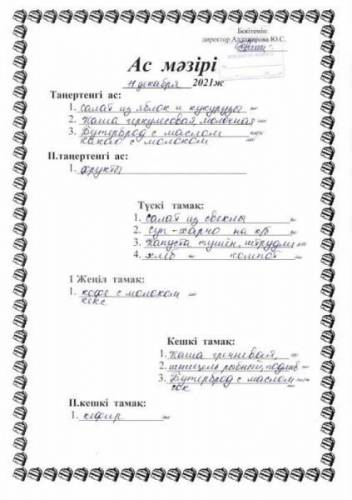 Бекітемін:
директор
Ас мәзірі
декабря 2021ж
Таңертеңгі ас:
1. салат из яблок и кукурузы
2. Каша геркулесовая молочная
3. Бутерброд с маслом
какао с молоком
II.таңертеңгі ас:
1. фрукты
Түскі тамақ:
1. салат из свеклы
2. суп-харчо на к/б
3. Капуста тушен,
4. хлеб компот
1 Жеңіл тамақ:
1. кофе с молоком
кекс
Кешкі тамақ:
1. Каша гречневая,
2. рыбный,
3. Бутерброд с маслом
сок
II.кешкі тамақ:
1. кефир